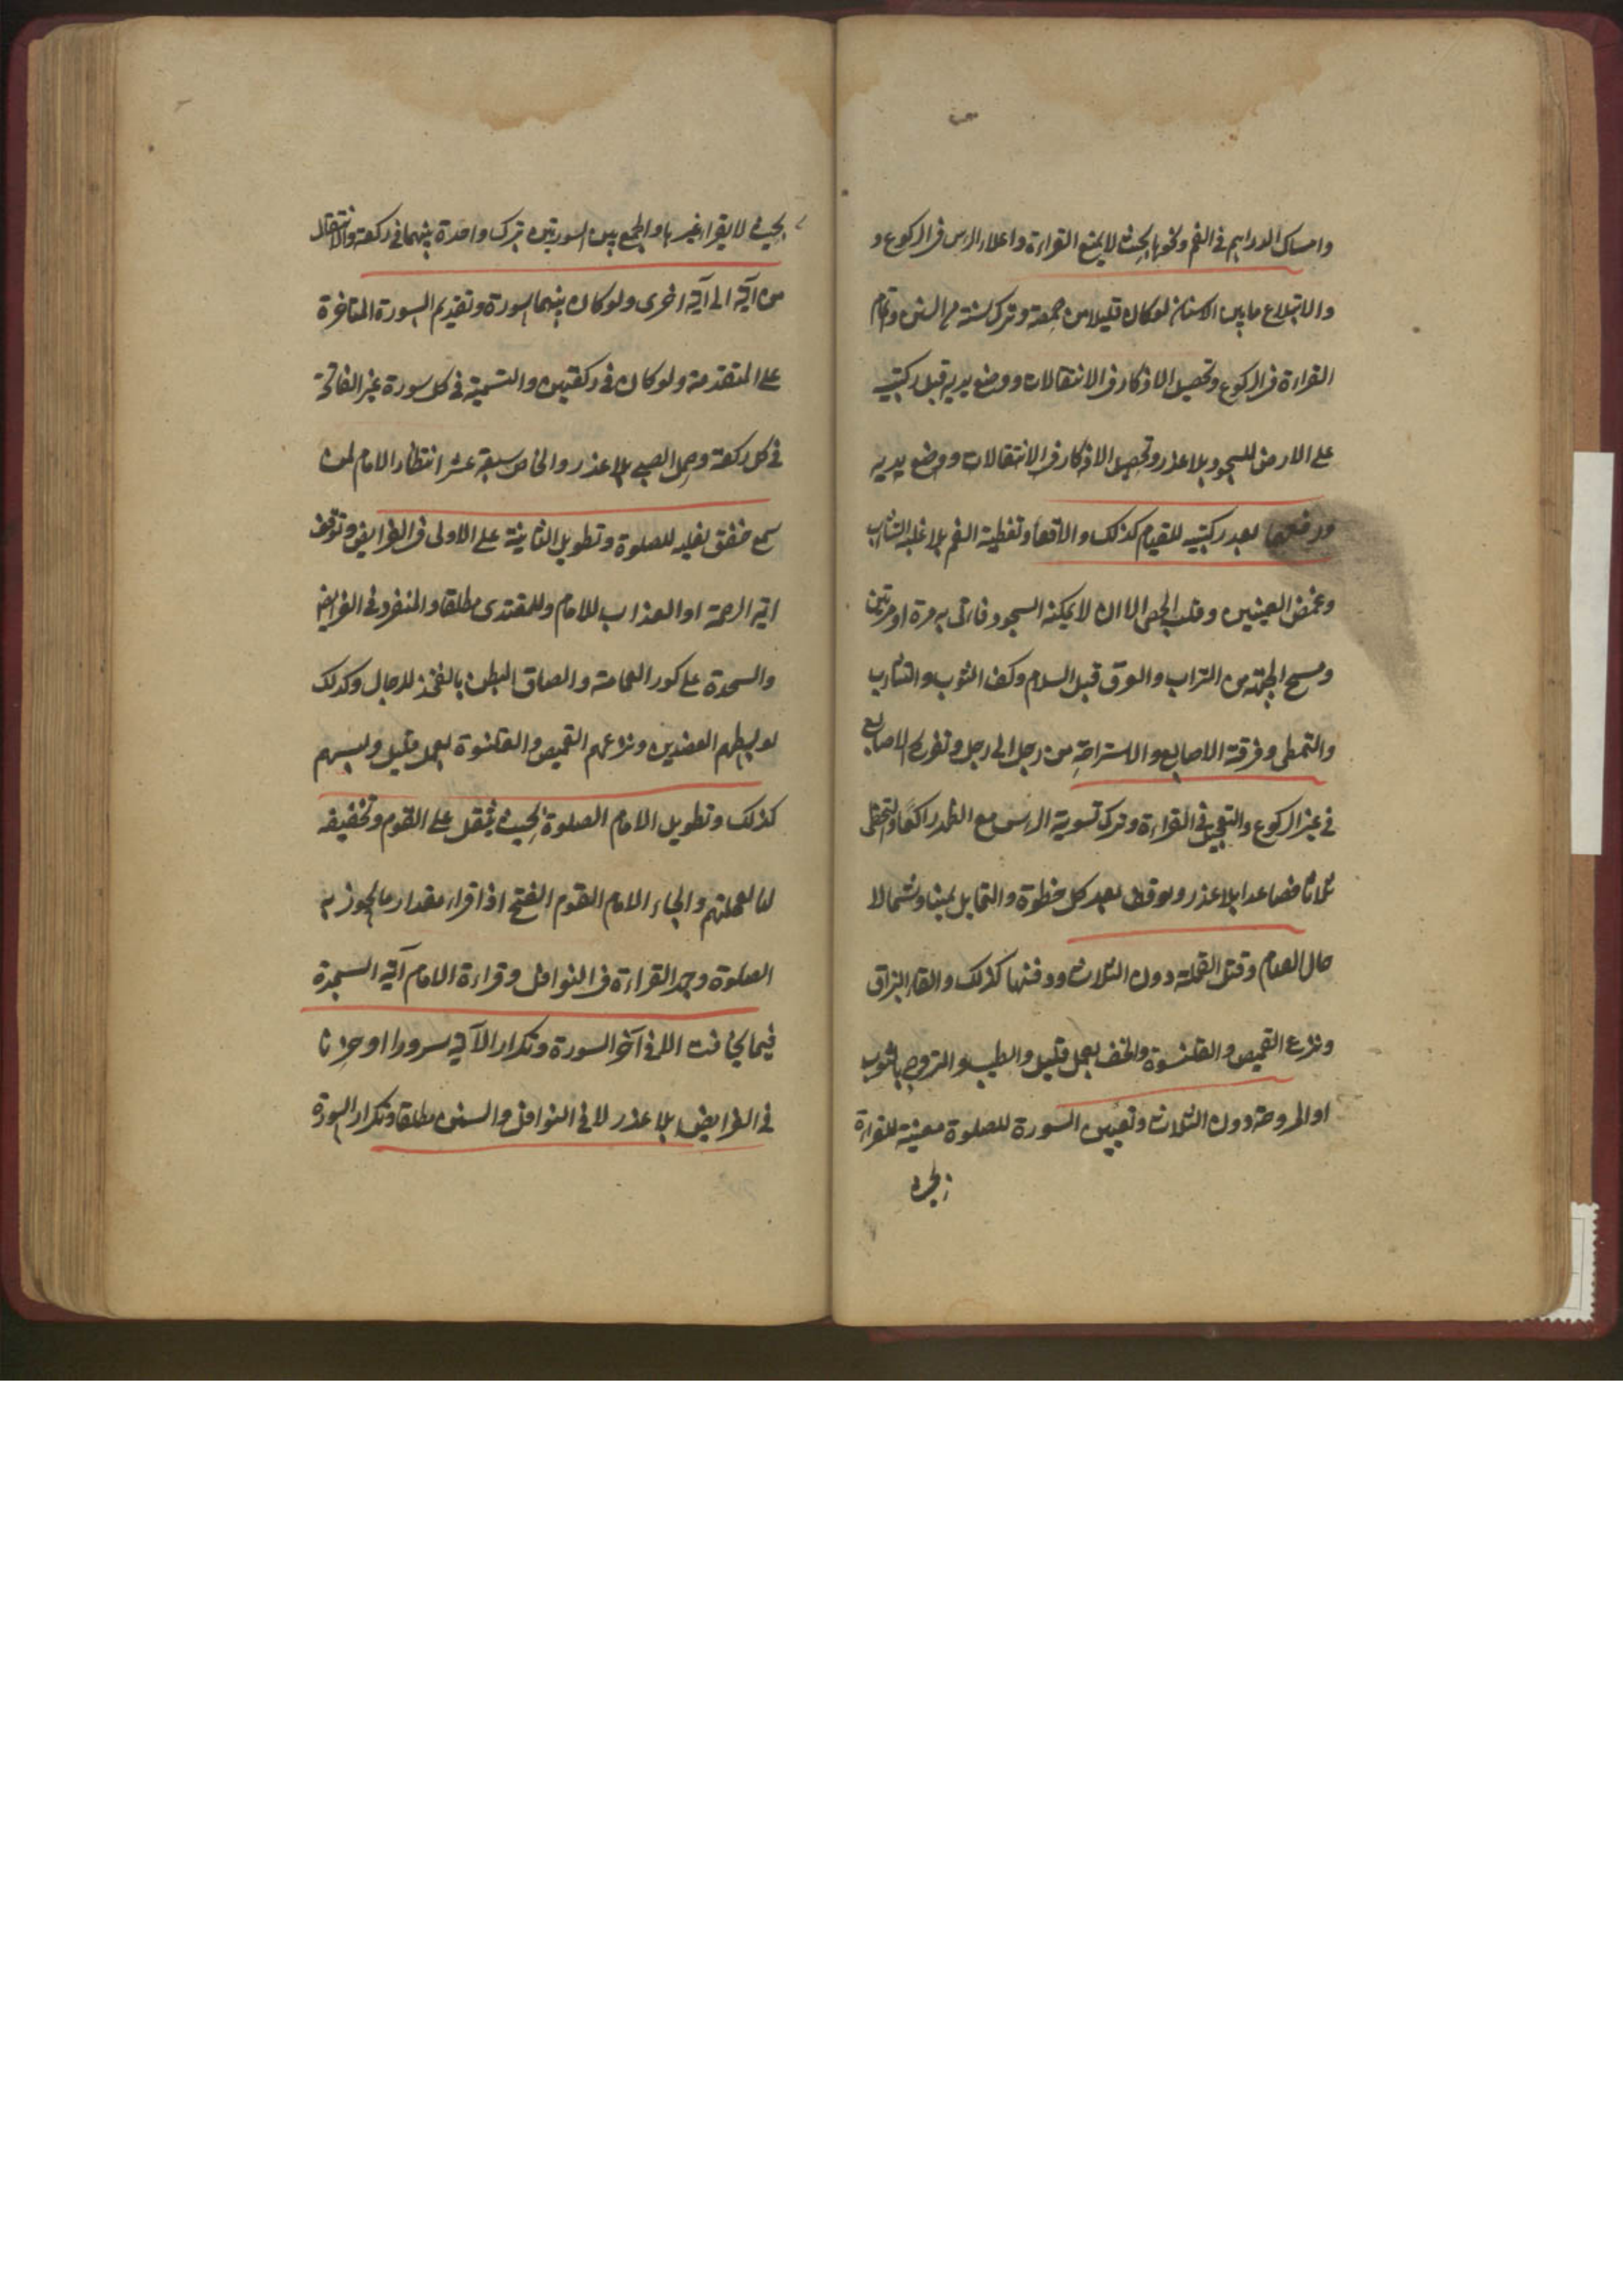 وامساك الدراهم في الفم ونحوها بحيث لا يمنع القراءة واعلاء الرأس في الركوع و
والابتلاع ما بين الاسنان لو كان قليلا من حمصة وترك سنة من السنن واتمام
القراءة في الركوع وتحصيل الاذكار في الانتقالات ووضع يديه قبل ركبتيه
على الارض للسجود بلا عذر وتحصيل الاذكار في الانتقالات ووضع يديه
ورفعهما بعد ركبتيه للقيام كذلك والاقعاء وتغطية الفم بلا غلبة التثاب
وغمض العينين وقلب الحصى الا ان لا يمكنه السجود فاتى به مرة او مرتين
ومسح الجبهة من التراب والعرق قبل السلام وكف الثوب والتثاب
والتمطى وفرقعة الاصابع والاستراحة من رجل الى رجل وتفريج الاصابع
في غير الركوع والتعجيل في القراءة وترك تسوية الرأس مع الظهر راكعا والتخطى
ثلاثا فصاعدا بلا عذر ولو وقف بعد كل خطوة والتمايل يمينا وشمالا
حال القيام وقتل القملة دون الثلاث ودفنها كذلك والقاء البزاق
ونزع القميص والقلنسوة والخف بعمل قليل والطيب والتروح بالثوب
او المروحة دون الثلاث وتعيين السورة للصلوة معينة للقراءة
بحيث
بحيث لا يقراء غيرها والجمع بين السورتين بترك واحدة بينهما في ركعة والانتقال
من آية الى آية اخرى ولو كان بينهما سورة وتقديم السورة المتاخرة
على المتقدمة ولو كان في ركعتين والتسمية في كل سورة غير الفاتحة
في كل ركعة وحمل الصبي بلا عذر والخاص سبعة عشر انتظار الامام لمن
سمع خفق نعليه للصلوة وتطويل الثانية على الاولى في الفرايض وتوقف
اية الرحمة او العذاب للامام وللمقتدى مطلقا والمنفرد في الفرايض
والسجدة على كور العمامة والصاق البطن بالفخذ للرجال وكذلك
لو بسطهم العضدين ونزعهم القميص والقلنسوة بعمل قليل ولبسهم
كذلك وتطويل الامام الصلوة بحيث يثقل على القوم وتخفيفه
لنا لعجلتهم والجاء الامام القوم الفتح اذا قراء مقدار ما يجوز به
الصلوة وجهر القراءة في النوافل وقراءة الامام آية السجدة
فيما يخافت الا في آخر السورة وتكرار الآية سرورا او حزنا
في الفرايض بلا عذر لا في النوافل والسنن مطلقا وتكرار السورة